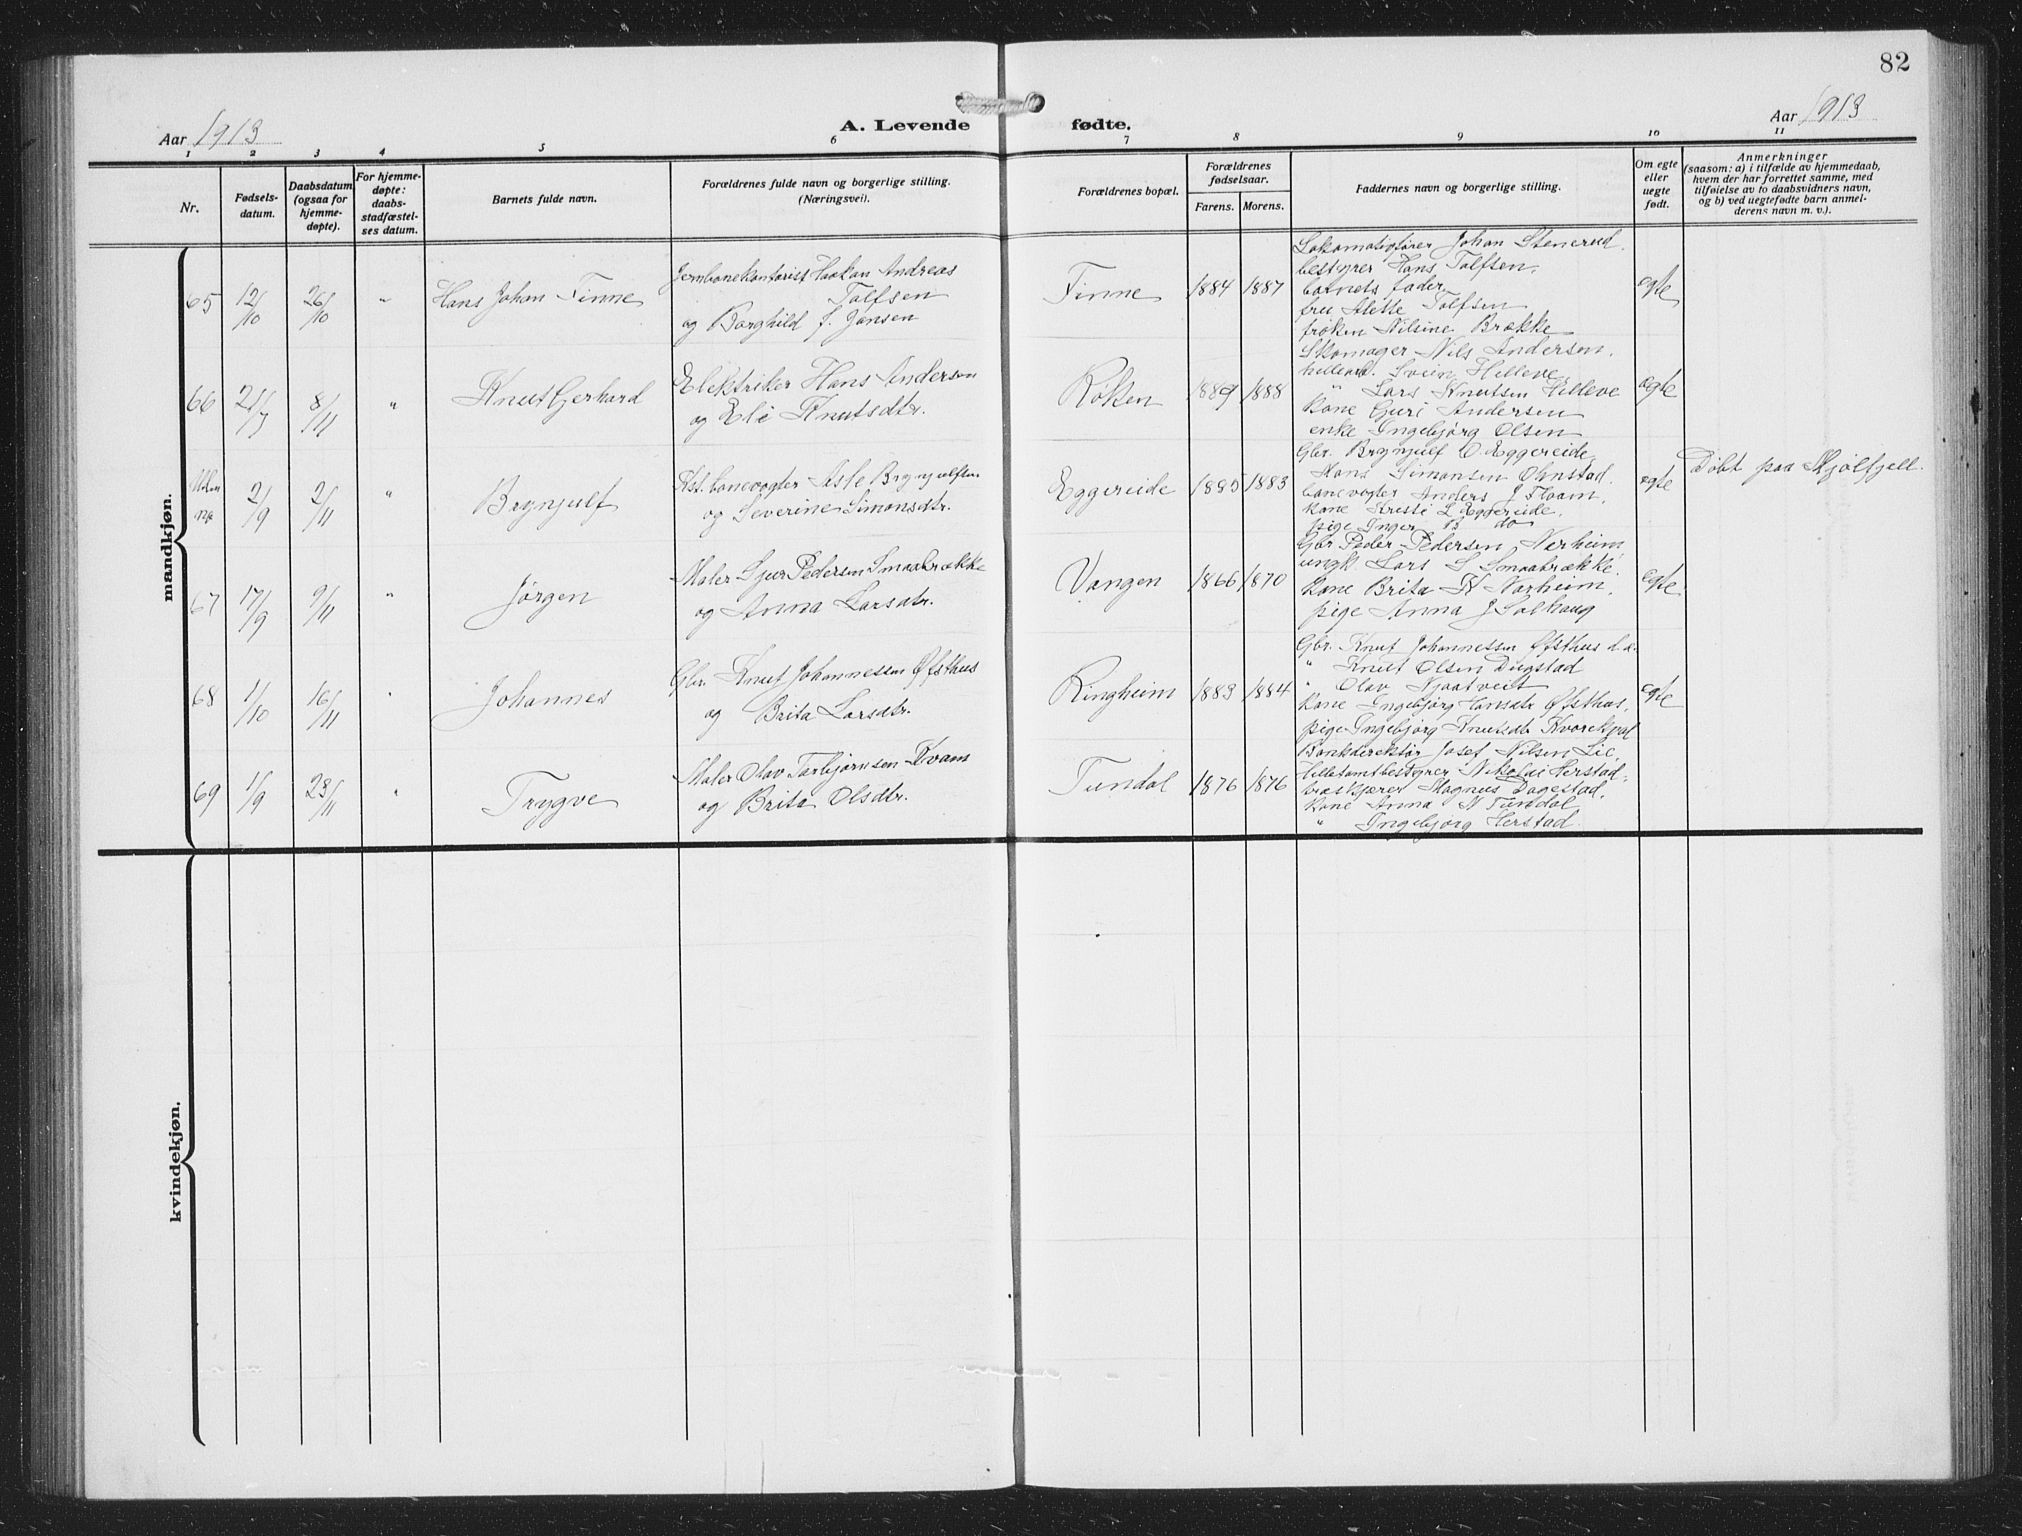 82
Aar 1913
A. Levende fødte.
Aar 1913
1 2 3 4 5 6 7 8 9 10 11
Nr.
Fødsels-
datum.
Daabsdatum
(ogsaa for
hjemme-
døpte).
For hjemme-
døpte:
daabs-
stadfæstel-
ses datum.
Barnets fulde navn.
Forældrenes fulde navn og borgerlige stilling.
(Næringsvei).
Forældrenes bopæl.
Forældrenes
fødselsaar.
Farens. Morens.
Faddernes navn og borgerlige stilling.
Om egte
eller
uegte
født.
Anmerkninger
(saasom: a) i tilfælde av hjemmedaab,
hvem der har forrettet samme, med
tilføielse av to daabsvidners navn,
og b) ved uegtefødte barn anmel-
derens navn m. v.).
mandkjøn.
65 12/10 26/10 "
Hans Johan Finne
Jernbanekontorist Haakon Andreas
Tolfsen
og Borghild f. Jansen
Finne 1884 1887
Lokomotivfører Johan Stenerud.
bestyrer Hans Tolfsen.
barnets fader.
fru Alette Tolfsen
frøken Nilsine Brække
egte
66 21/7 8/11 "
Knut Gerhard
Elektriker Hans Andersen
og Eli Knutsdtr.
Rokten 1889 1888
Skomager Nils Andersen.
Svein Hilleve
" Lars Knutsen Hilleve
kone Guri Andersen
enke Ingebjørg Olsen
egte
Uten
nr 2/9 2/11 "
Brynjulf
Est. banevogter Asle Brynjulfsen
og Severine Simonsdtr.
Eggereide 1885 1883
Gbr. Brynjulf O. Eggereide,
Hans Simonsen Ohnstad.
banevogter Anders J Flaam.
kone Kristi L Eggereide.
pige Inger B do
egte
Døbt paa Mjølfjell.
67 17/9 9/11 "
Jørgen
Maler Sjur Pedersen Smaabrække
og Anna Larsdtr.
Vangen 1866 1870
Gbr Peder Pedersen Nerheim
ungk Lars S Smaabrække.
kone Brita K Nerheim.
pige Anna J Solhaug
egte
68 1/10 16/11 "
Johannes
Gbr. Knut Johannessen Øfsthus
og Brita Larsdtr.
Ringheim 1883 1884
Gbr. Knut Johannessen Øfsthus d.æ.
" Knut Olsen Dugstad
" Olav Njaatveit
kone Ingebjørg Hansdtr Øfsthus.
pige Ingebjørg Knutsdtr Kvorekval
egte
69 1/9 23/11 "
Trygve
Maler Olav Torbjørnsen Kvam
og Brita Olsdtr.
Tundal 1876 1876
Bankdirektør Josef Nilsen Lie,
Nikolai Herstad
træskjærer Magnus Dagestad.
kone Anna N Tundal
" Ingebjørg Herstad.
kvindekjøn.